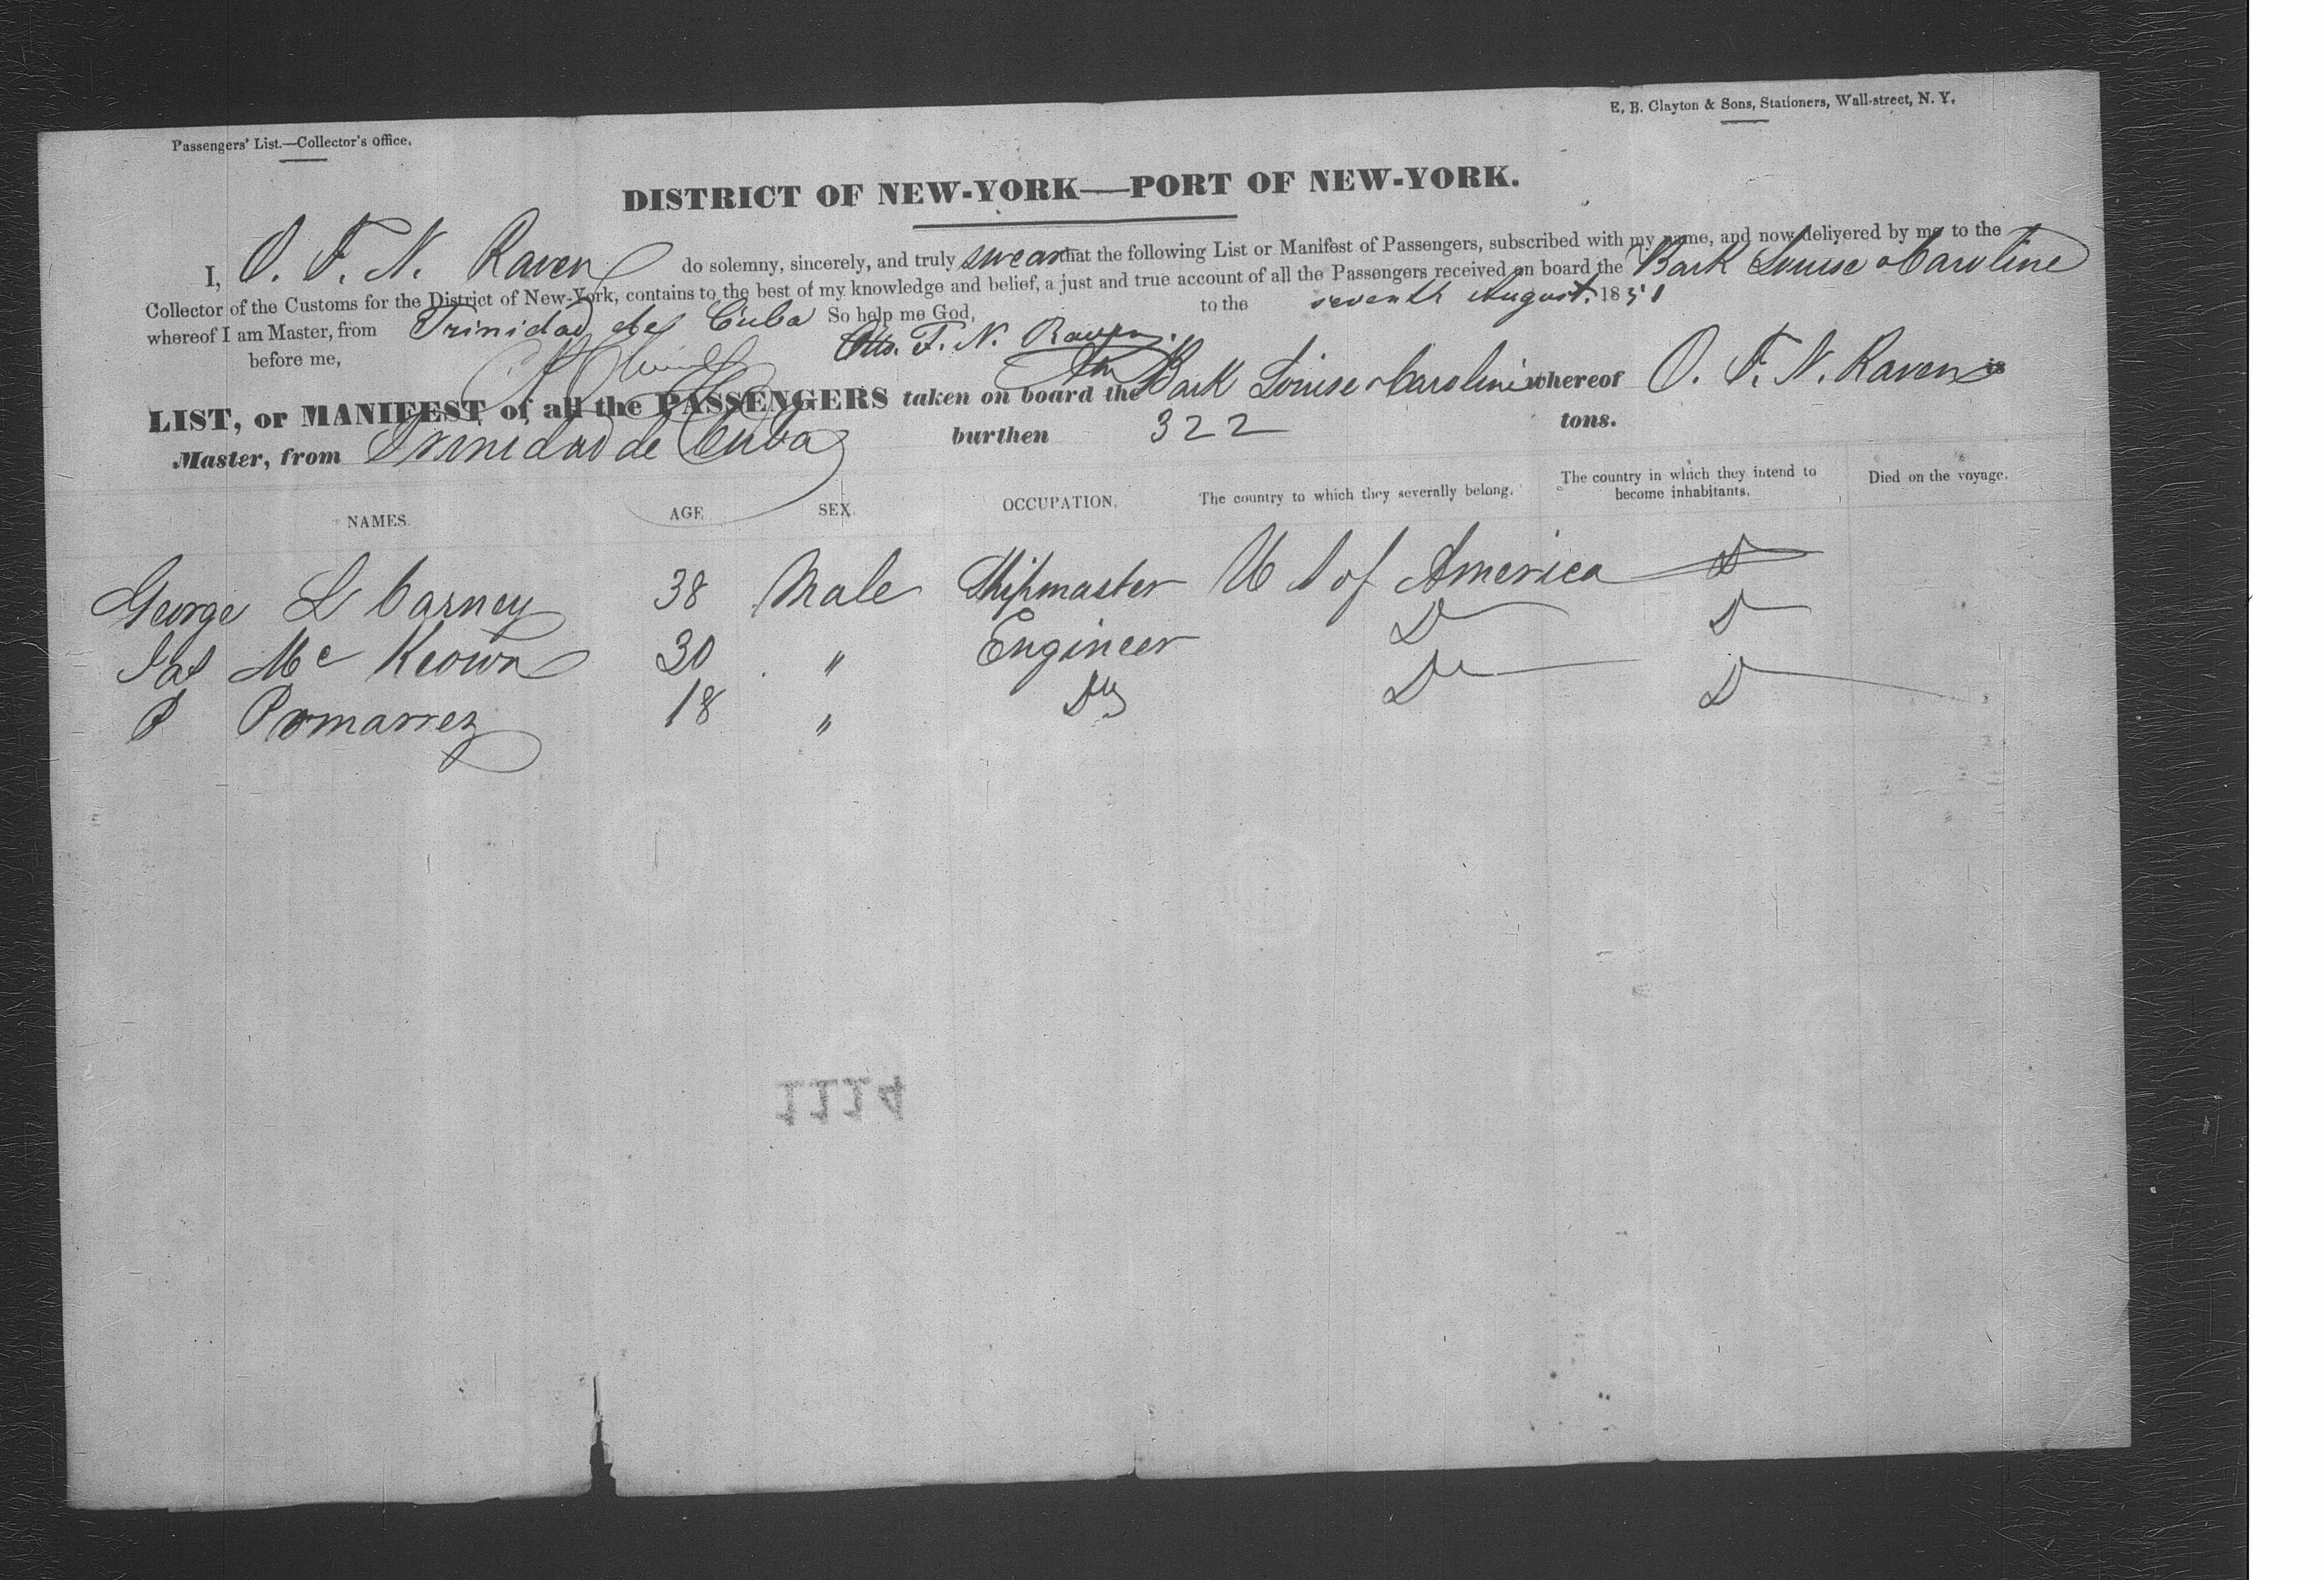 Passengers' List.—Collector's Office.
E. B. Clayton & Sons, Stationers, Wall-street, N. Y.
DISTRICT OF NEW-YORK—PORT OF NEW-YORK.
I, O. F. N. Raven do solemny, sincerely, and truly swear that the following List or Manifest of Passengers, subscribed with my name, and now delivered by me to the
Collector of the Customs for the District of New-York, contains to the best of my knowledge and belief, a just and true account of all the Passengers received on board the Bark Louise Caroline
whereof I am Master, from Trinidad de Cuba So help me God,
to the seventh August. 1851
before me, Otto. F. N. Raven.
LIST, or MANIFEST of all the PASSENGERS taken on board the Bark Louise Caroline whereof O. F. N. Raven is
Master, from Trinidad de Cuba burthen 322 tons.
NAMES. AGE SEX. OCCUPATION. The country to which they severally belong. The country in which they intend to become inhabitants. Died on the voyage.
George L Carney 38 Male Shipmaster U S of America D
Jas Mc Keown 30 " Engineer D D
P Pomarrez 18 " Do Do D
1114